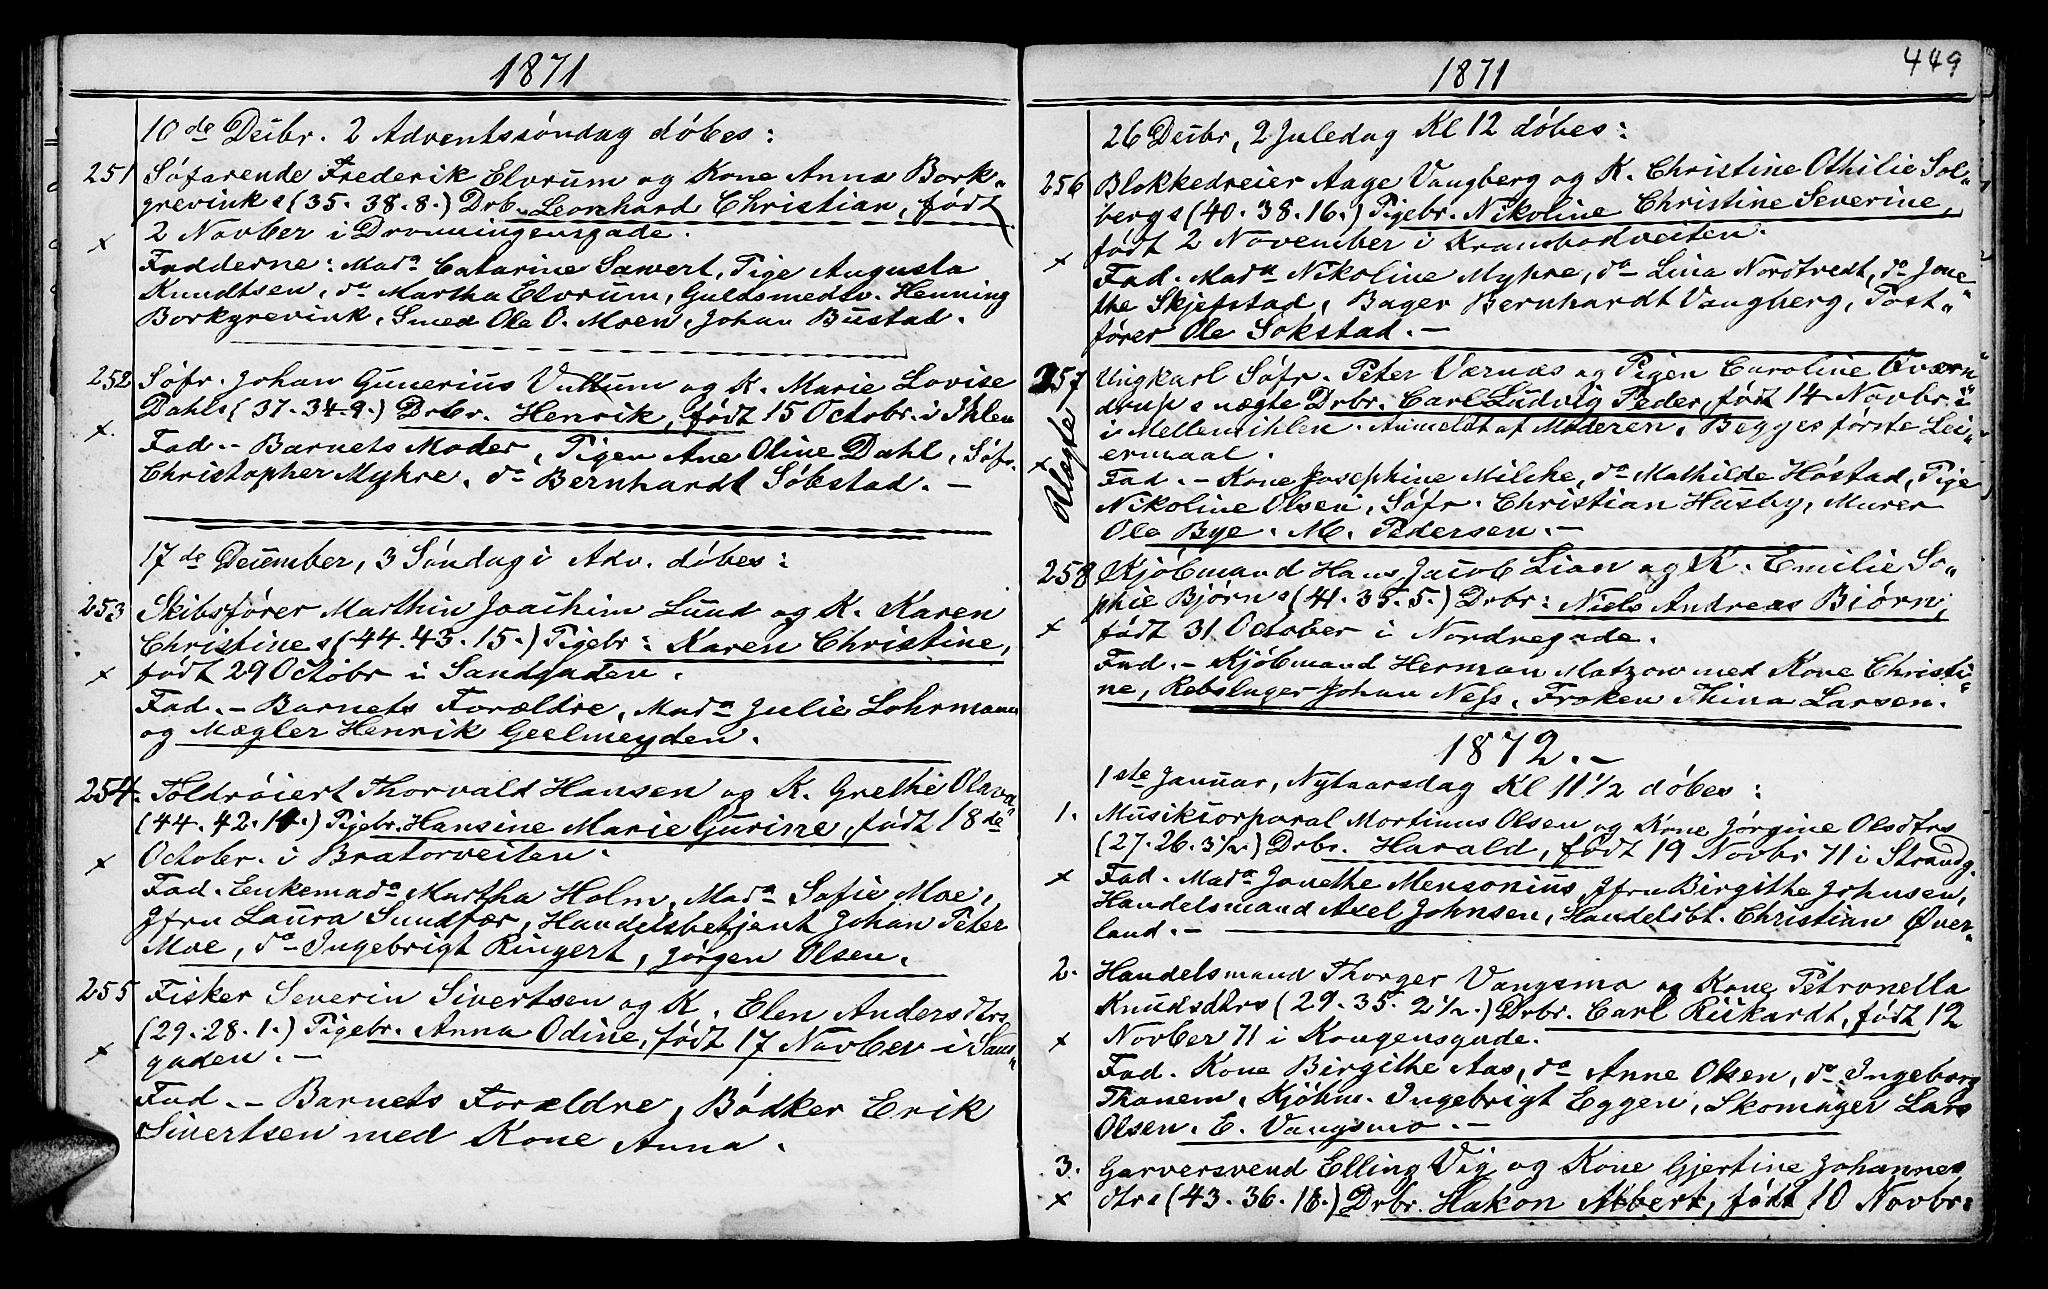 1871
10de Decbr. 2 Adventssøndag døbes:
251 Søfarende Frederik Elvrum og Kone Anna Bork-
grevink s (35. 38. 8.) Drb. Leonhard Christian, født
× 2 Novber i Dronningensgade.
Fadderne: Mada Catarine Sawert, Pige Augusta
Knudtsen, do Martha Elvrum, Guldsmedsv. Henning
Borkgrevink, Smed Ole O. Moen, Johan Bustad.
252 Søfr. Johan Gunerius Vullum og K. Marie Lovise
Dahls (37. 34. 9.) Drbr. Henrik, født 15 Octobr. i Ihlen
× Fad. - Barnets Moder, Pigen Ane Oline Dahl, Søfr.
Christopher Myhre, do Bernhardt Søkstad. -
17de December, 3 Søndag i Adv. døbes:
253 Skibsfører Marthin Joachim Lund og K. Karen
Christine s (44. 43. 15.) Pigebr: Karen Christine,
× født 29 Octobr i Sandgaden.
Fad. - Barnets Forældre, Mada Julie Lohrmann
og Mægler Henrik Geelmeyden.
254. Toldrøiert Thorvald Hansen og K. Grethe Olava
(44. 42. 14.) Pigebr. Hansine Marie Gurine, født 18de
× Octobr. i Bratørveiten.
Fad. Enkemada Martha Holm, Mada Sofie Moe,
Jfru Laura Sundfær, Handelsbetjent Johan Peter
Moe, do Ingebrigt Ringert, Jørgen Olsen.
255 Fisker Severin Sivertsen og K. Elen Andersdtrs
(29. 28. 1.) Pigebr. Anna Odine, født 17 Novber i San-
× gaden. -
Fad. - Barnets Forældre, Bødker Erik
Sivertsen med Kone Anna.
449
1871
26 Decbr, 2 Juledag Kl 12 døbes:
256 Blokkedreier Aage Vangberg og K. Christine Othilie Sol-
bergs (40. 38. 16.) Pigebr. Nikoline Christine Severine,
× født 2 November i Krambodveiten.
Fad. Mada Nikoline Myhre, do Lina Nordtvedt, do Jone-
the Skjefstad, Bager Bernhardt Vangberg, Post-
fører Ole Sokstad. -
257 Ungkarl Søfr. Peter Værnæs og Pigen Caroline Qværn-
drup s uægte Drbr. Carl Ludvig Peder, født 14 Novbr i
i Mellemihlen. Anmeldt af Moderen. Begges første Lei-
× Uægte ermaal.
Fad. - Kone Josephine Milche, do Mathilde Høstad, Pige
Nikoline Olsen, Søfr. Christian Husby, Murer
Ole Bye. M. Pedersen. -
258 Kjøbmand Hans Jacob Lian og K. Emilie So-
phie Bjørn s (41. 35. 5.) Drbr: Niels Andreas Biørn,
× født 31 October i Nordregade.
Fad. - Kjøbmand Herman Matzow med Kone Christi-
ne, Rebslager Johan Ness, Frøken Thina Larsen.
1872. -
1ste Januar, Nytaarsdag Kl 11 1/2 døbes:
1. Musikcorporal Mortinus Olsen og Kone Jørgine Olsdtrs
(27. 26. 3 1/2.) Drbr. Harald, født 19 Novbr 71 i Strandg.
× Fad. Mada Jonethe Mensonius, Jfru Birgithe Johnsen,
Handelsmand Axel Johnsen, Handelsbt. Christian Øver-
land. -
2. Handelsmand Thorger Vangsmo og Kone Petronella
Knudsdtrs (29. 35. 2 1/2.) Drbr. Carl Rickardt, født 12
× Novber 71 i Kongensgade.
Fad. Kone Birgithe Aas, do Anne Olsen, do Ingeborg
Thanem, Kjøbm. Ingebrigt Eggen, Skomager Lars
Olsen. E. Vangsmo. -
3. Garversvend Elling Vig og Kone Gjertine Johannes
× dtrs (43. 36. 18.) Drbr. Hakon Albert, født 10 Novbr: